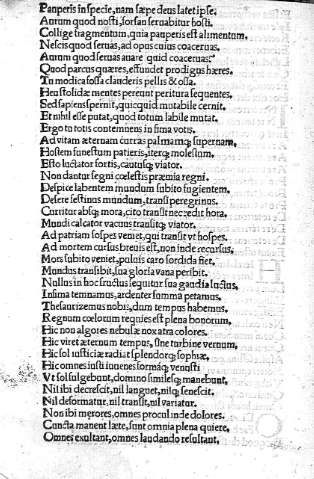 Pauperis in specie, nam sæpe deus latet ipse,
Aurum quod nosti, forsan seruabitur hosti.
Collige fragmentum, quia pauperis est alimentum,
Nescis quod seruas, ad opus cuius coaceruas.
Aurum quod seruas auare quid coaceruas?
Quod parcus quæres, effundet prodigus hæres.
Tu modica fossa clauderis pellis & ossa.
Heu stolidæ mentes pereunt peritura sequentes.
Sed sapiens spernit, quicquid mutabile cernit.
Et nihil esse putat, quod totum labile mutat.
Ergo tu totis contemnens in sima votis.
Ad vitam æternam curras palmamq; supernam,
Hostem funestum patieris, iterq; molestum,
Esto luctator fortis, cautusq; viator.
Non dantur segni cœlestis præmia regni.
Despice labentem mundum subito fugientem,
Desere festinus mundum, transi peregrinus.
Curritur absq; mora, cito transit nec redit hora.
Mundi calcator vacuus transitq; viator.
Ad patriam sospes veniet, qui transit vt hospes.
Ad mortem cursus breuis est, non inde recursus,
Mors subito veniet, puluis caro sordida fiet.
Mundus transibit, sua gloria vana peribit.
Nullus in hoc fructus sequitur sua gaudia luctus,
Infima temnamus, ardenter summa petamus.
Thesaurizemus nobis, dum tempus habemus,
Regnum cœlorum requies est plena bonorum,
Hic non algores nebulæ nox atra colores.
Hic viret æternum tempus, sine turbine vernum,
Hic sol iusticiæ radiat splendorq; sophiæ,
Hic omnes iusti iuuenes formæq; venusti
Vt sol fulgebunt, domino similesq; manebunt,
Nil ibi decrescit, nil languet, nilq; senescit.
Nil deformatur, nil transit, nil variatur.
Non ibi mœrores, omnes procul inde dolores.
Cuncta manent læte, sunt omnia plena quiete,
Omnes exultant, omnes laudando resultant,